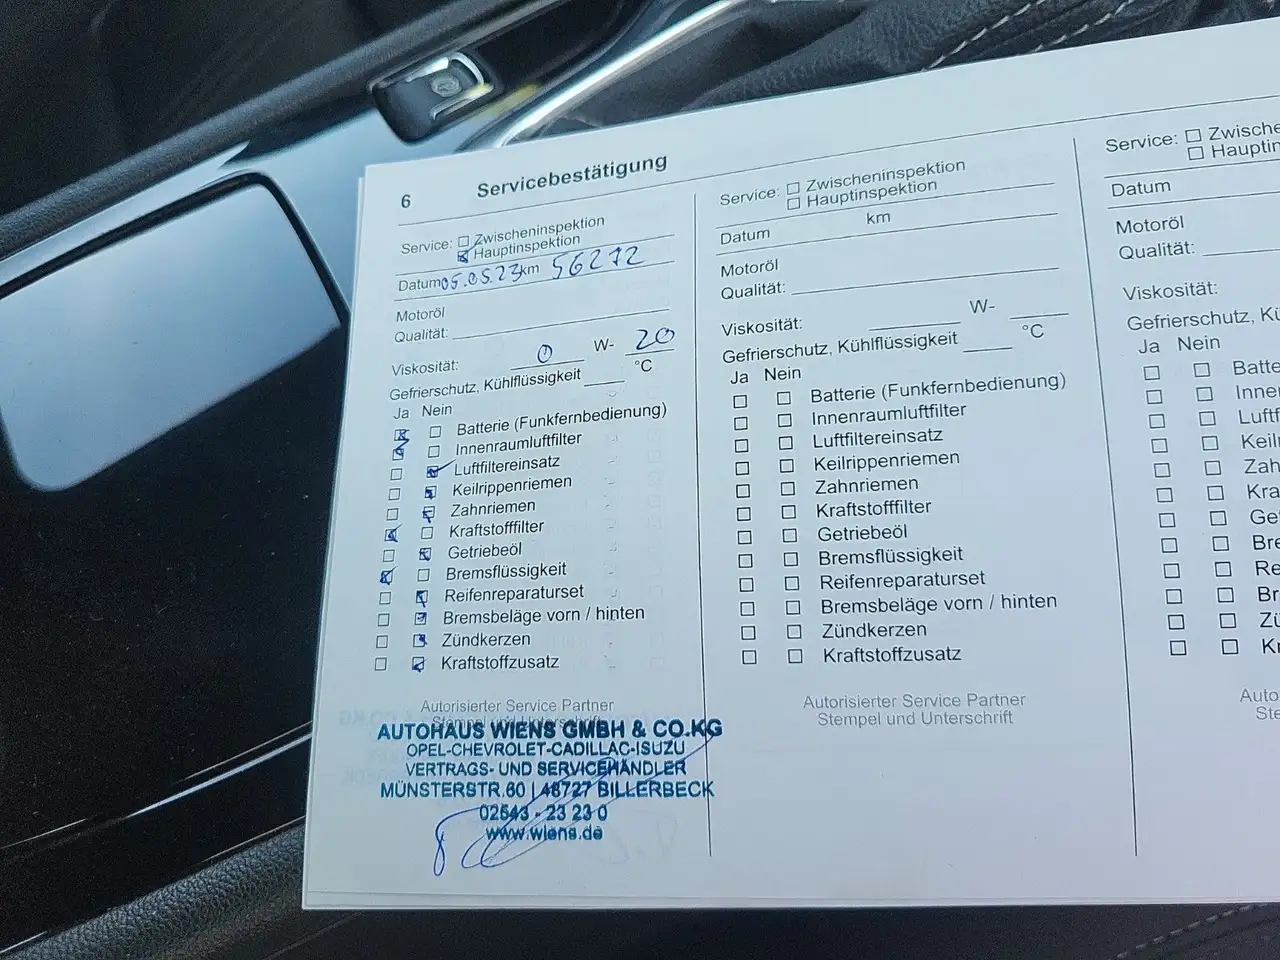 6 Servicebestätigung
Service: ☐ Zwischeninspektion
☒ Hauptinspektion
Datum 05.05.23 km 56272
Motoröl
Qualität:
Viskosität: 0 W- 20
Gefrierschutz, Kühlflüssigkeit °C
Ja Nein
☒ ☐ Batterie (Funkfernbedienung)
☒ ☐ Innenraumluftfilter
☐ ☒ Luftfiltereinsatz
☐ ☒ Keilrippenriemen
☐ ☒ Zahnriemen
☒ ☐ Kraftstofffilter
☐ ☒ Getriebeöl
☒ ☐ Bremsflüssigkeit
☐ ☒ Reifenreparaturset
☐ ☒ Bremsbeläge vorn / hinten
☐ ☒ Zündkerzen
☐ ☒ Kraftstoffzusatz
Autorisierter Service Partner
Stempel und Unterschrift
AUTOHAUS WIENS GMBH & CO.KG
OPEL-CHEVROLET-CADILLAC-ISUZU
VERTRAGS- UND SERVICEHÄNDLER
MÜNSTERSTR.60 | 48727 BILLERBECK
02543 - 23 23 0
www.wiens.de
Service: ☐ Zwischeninspektion
☐ Hauptinspektion
Datum km
Motoröl
Qualität:
Viskosität: W-
Gefrierschutz, Kühlflüssigkeit °C
Ja Nein
☐ ☐ Batterie (Funkfernbedienung)
☐ ☐ Innenraumluftfilter
☐ ☐ Luftfiltereinsatz
☐ ☐ Keilrippenriemen
☐ ☐ Zahnriemen
☐ ☐ Kraftstofffilter
☐ ☐ Getriebeöl
☐ ☐ Bremsflüssigkeit
☐ ☐ Reifenreparaturset
☐ ☐ Bremsbeläge vorn / hinten
☐ ☐ Zündkerzen
☐ ☐ Kraftstoffzusatz
Autorisierter Service Partner
Stempel und Unterschrift
Service: ☐ Zwische
☐ Hauptin
Datum
Motoröl
Qualität:
Viskosität:
Gefrierschutz, Kü
Ja Nein
☐ ☐ Batte
☐ ☐ Inne
☐ ☐ Luftf
☐ ☐ Keil
☐ ☐ Zah
☐ ☐ Kra
☐ ☐ Ge
☐ ☐ Bre
☐ ☐ Re
☐ ☐ Br
☐ ☐ Zü
☐ ☐ Kr
Auto
St